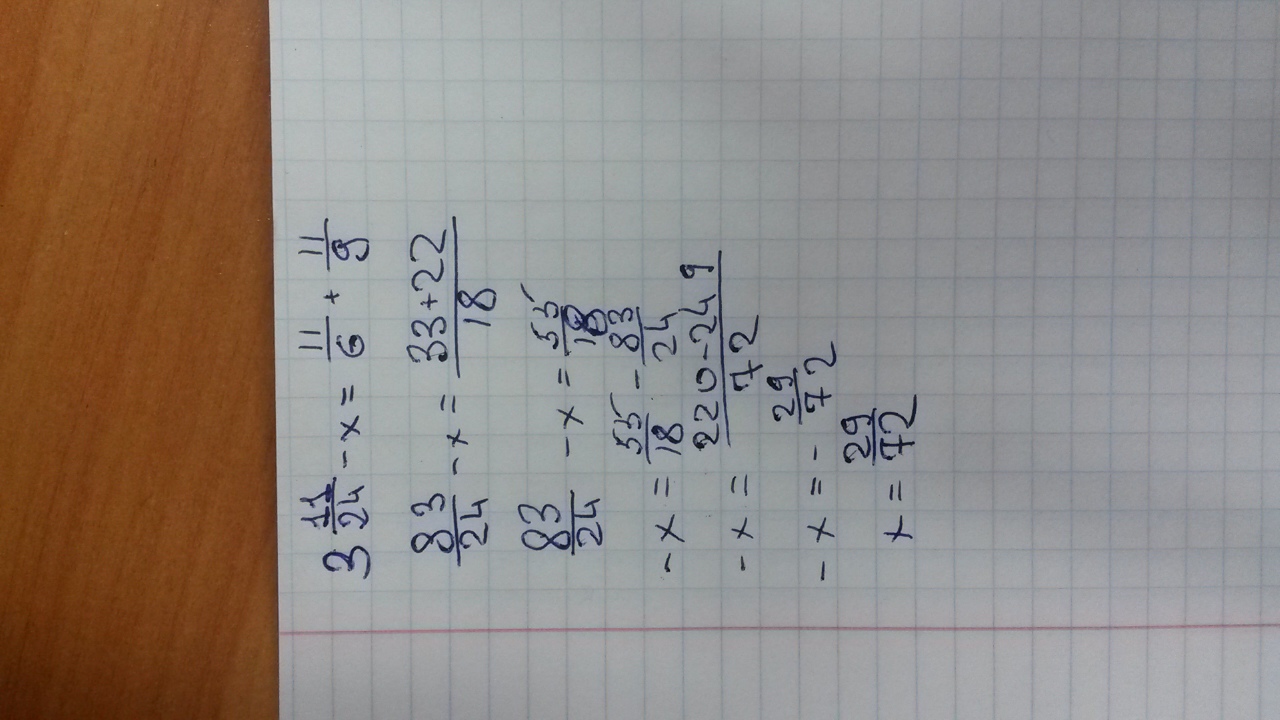 3 11/24 - x = 11/6 + 11/9
83/24 - x = 33+22/18
83/24 - x = 55/18
- x = 55/18 - 83/24
- x = 220-249/72
- x = - 29/72
x = 29/72